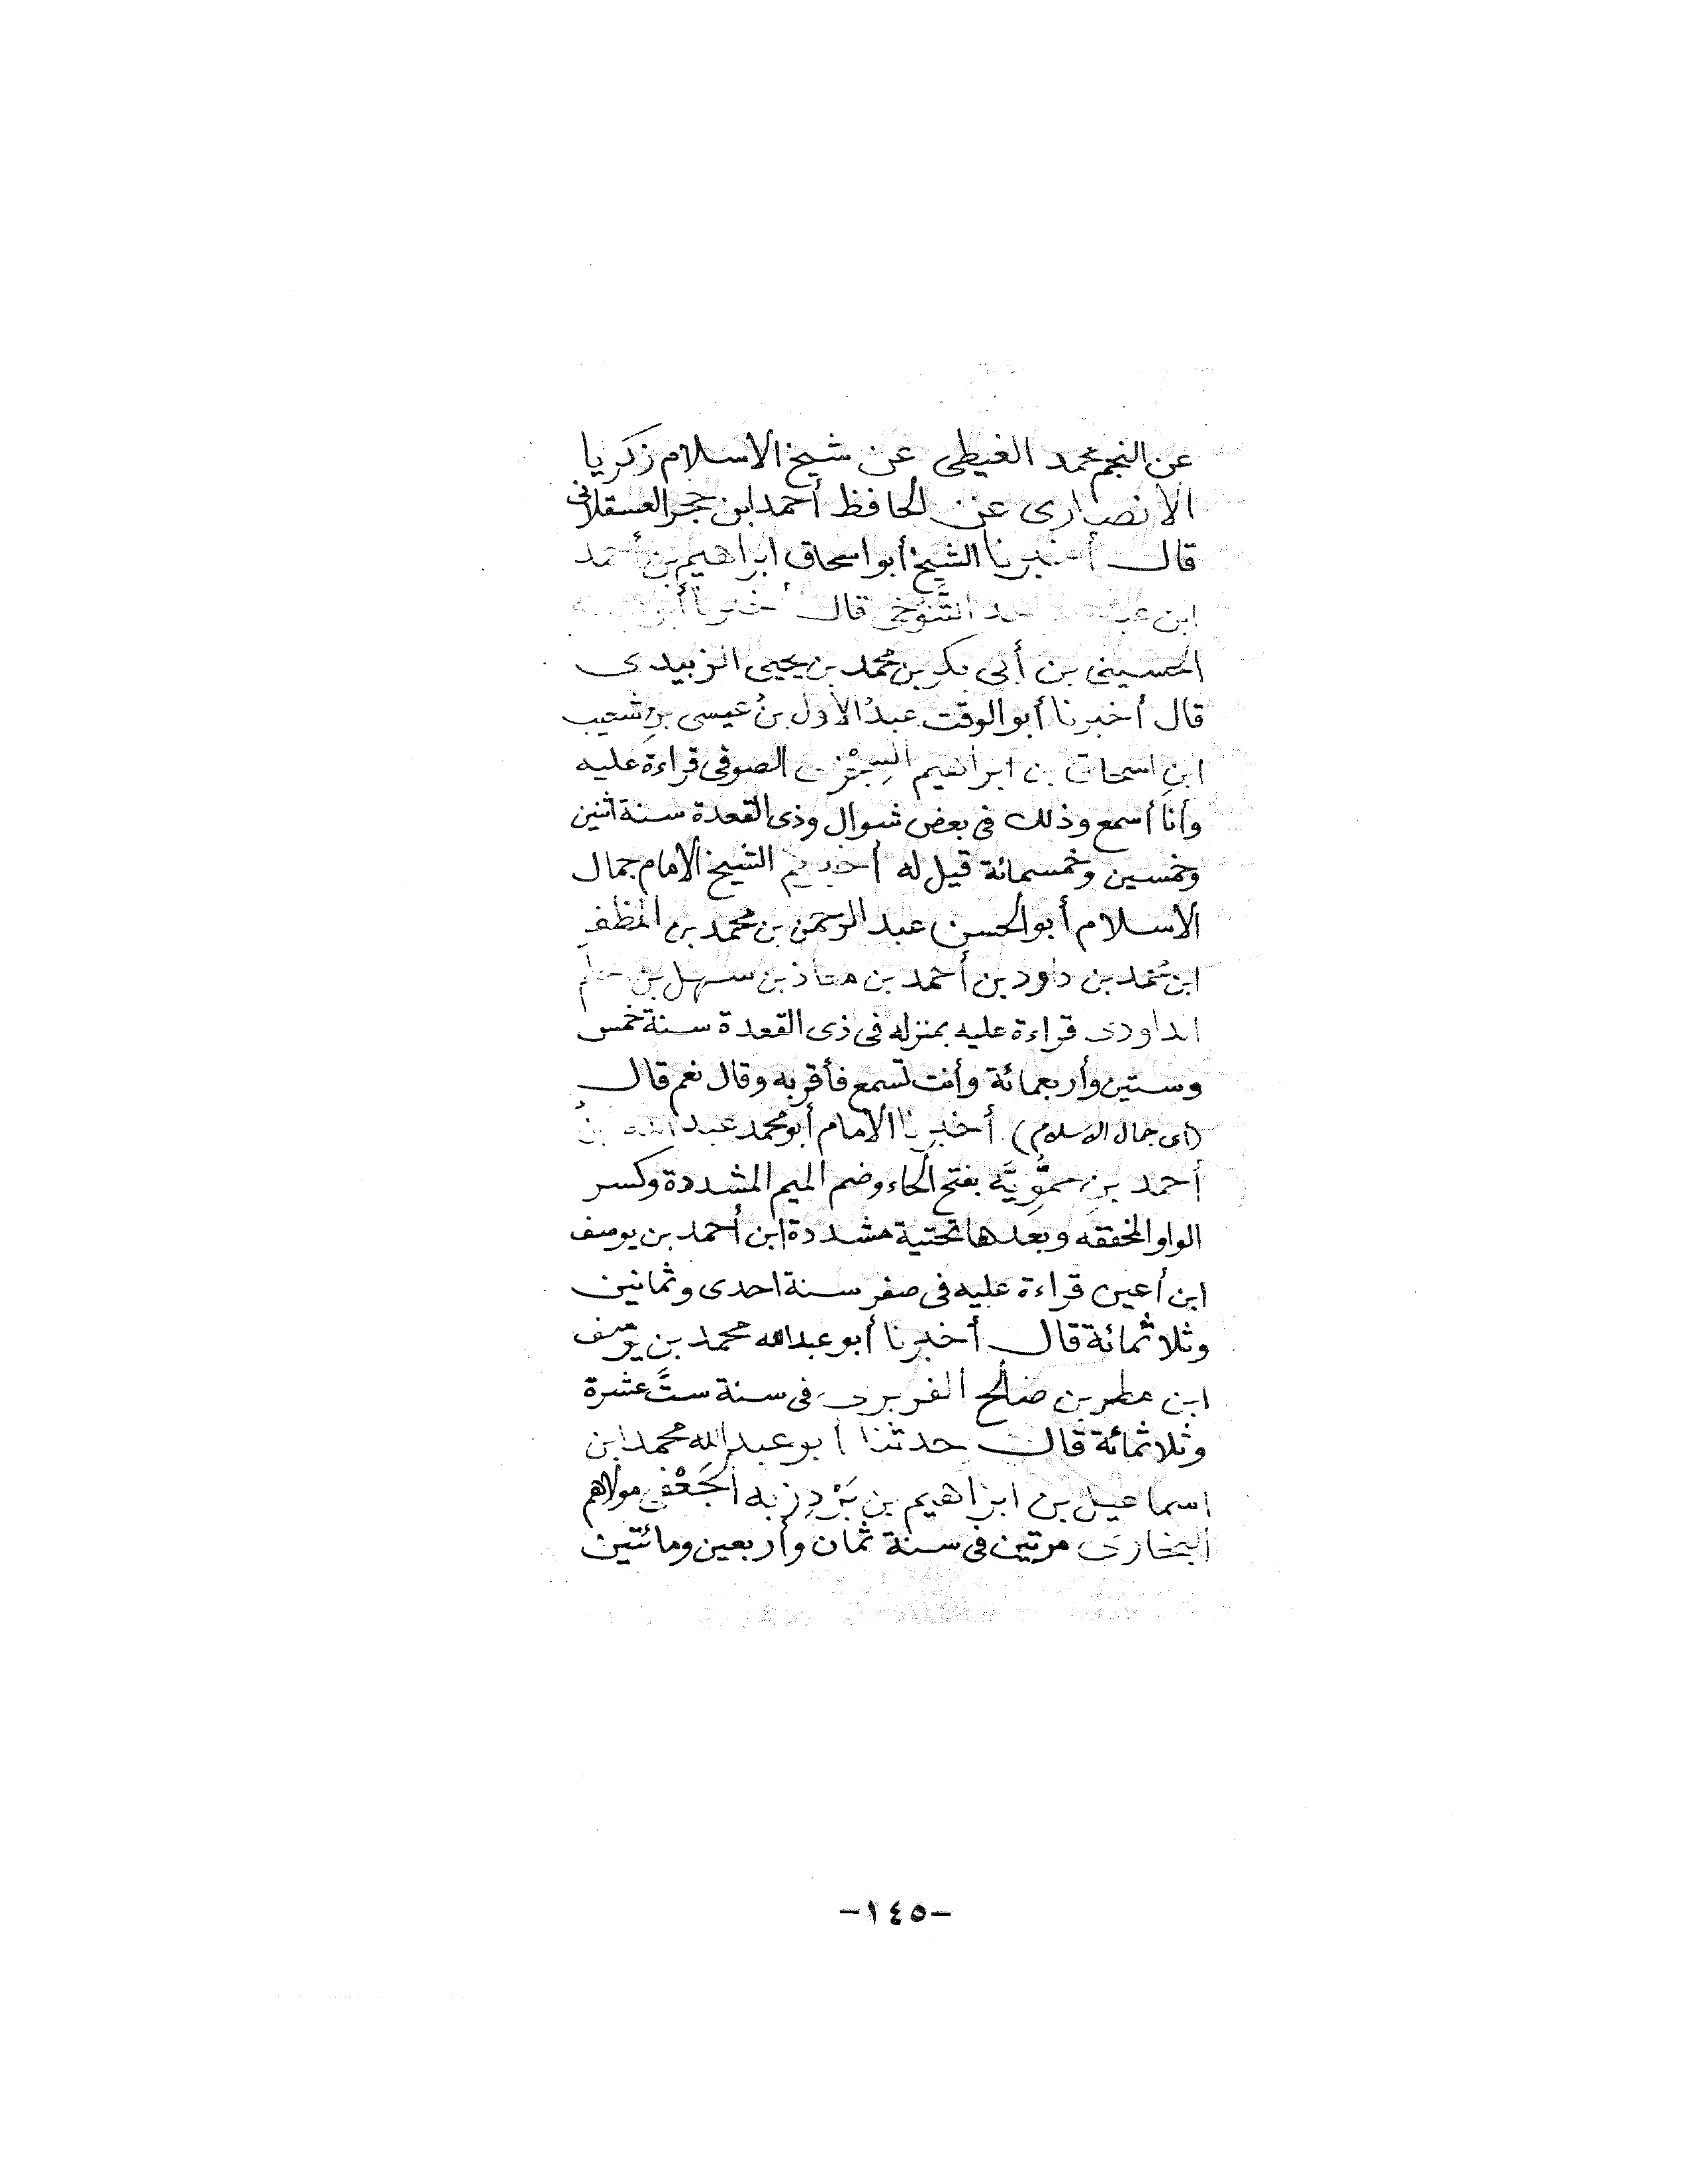 عن النجم محمد الغيطى عن شيخ الاسلام زكريا
الانصارى عن الحافظ أحمد ابن حجر العسقلانى
قال أخبرنا الشيخ أبو اسحاق ابراهيم بن أحمد
ابن عبد التَّنوخى قال أخبرنا أبو
الحسينى بن أبى بكر بن محمد بن يحيى الزبيدى
قال أخبرنا أبو الوقت عبدُ الأول بنُ عيسى بنِ شعيب
ابنِ اسحاق بن ابراهيم السِجْزى الصوفى قراءة عليه
وأنا أسمع وذلك فى بعض شوال وذى القعدة سنة اثنين
وخمسين وخمسمائة قيل له أخبركم الشيخ الامام جمال
الاسلام أبو الحسن عبد الرحمن بن محمد بن المظفر
ابن محمد بن داود بن أحمد بن معاذ بن سهل بن
الداودى قراءة عليه بمنزله فى ذى القعدة سنة خمس
وستين وأربعمائة وأنت تسمع فأقر به وقال نعم قال
(اى جمال الاسلام) أخبرنا الامام أبو محمد عبد الله بنُ
أحمد بنِ حمُّوِيَّه بفتح الحاء وضم الميم المشددة وكسر
الواو المخففه وبعدها تحتية مشددة ابن أحمد بن يوسف
ابن أعين قراءة عليه فى صفر سنة احدى وثمانين
وثلاثمائة قال أخبرنا أبو عبدالله محمد بن يوسف
ابن مطر بن صالح الفربرى فى سنة ستَّ عشرة
وثلاثمائة قال حدثنا أبو عبدالله محمد ابن
اسماعيل بن ابراهيم بن بَرْدِزبه الجَعْفى مولاهم
البخارى مرتين فى سنة ثمان وأربعين ومائتين
-١٤٥-